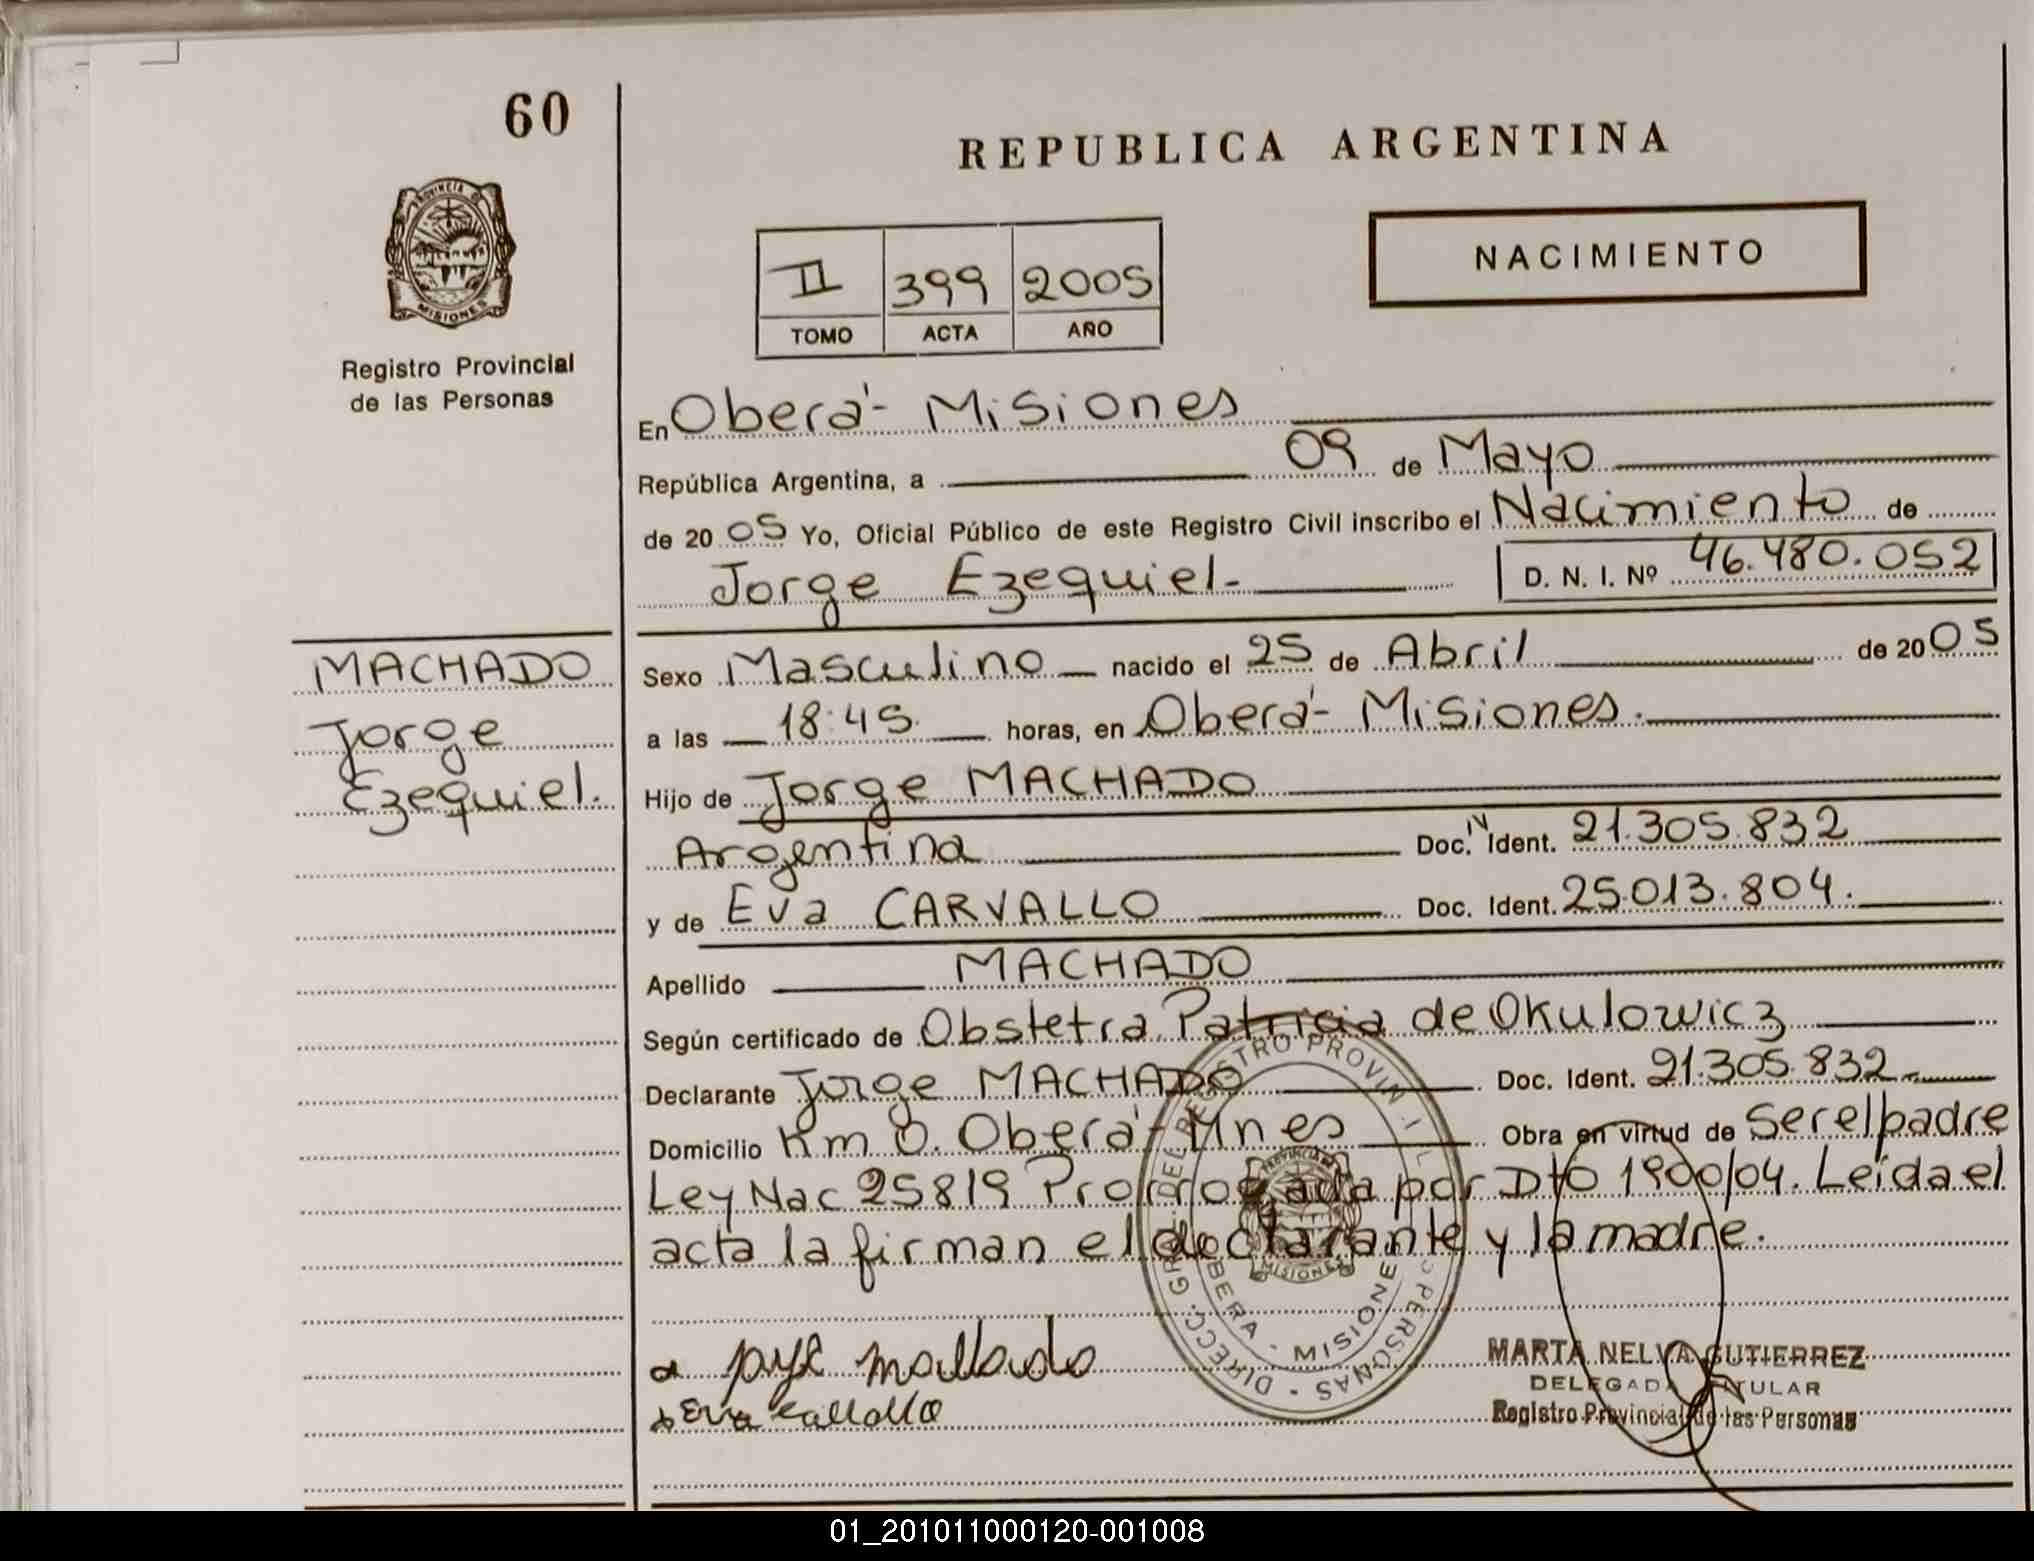 60
REPUBLICA ARGENTINA
PROVINCIA DE
MISIONES
NACIMIENTO
II 399 2005
TOMO ACTA AÑO
Registro Provincial
de las Personas
En Oberá - Misiones
República Argentina, a 09 de Mayo
de 2005 Yo, Oficial Público de este Registro Civil inscribo el Nacimiento de
Jorge Ezequiel- D. N. I. Nº 46.480.052
MACHADO
Jorge
Ezequiel.
Sexo Masculino nacido el 25 de Abril de 2005
a las 18:45 horas, en Oberá - Misiones.
Hijo de Jorge MACHADO
Argentina Doc. Ident. 21.305.832
y de Eva CARVALLO Doc. Ident. 25.013.804.
Apellido MACHADO
Según certificado de Obstetra Patricia de Okulowicz
Declarante Jorge MACHADO Doc. Ident. 21.305.832.
Domicilio Km 0. Oberá - Mnes Obra en virtud de Ser el padre
Ley Nac 25819 Prorrogada por Dto 1900/04. Leída el
acta la firman el declarante y la madre.
DIRECC. GRAL. DEL REGISTRO PROVINCIAL PERSONAS
OBERA - MISIONES
PROVINCIA DE
MISIONES
MARTA NELVA GUTIERREZ
DELEGADA TITULAR
Registro Provincial de las Personas
01_201011000120-001008